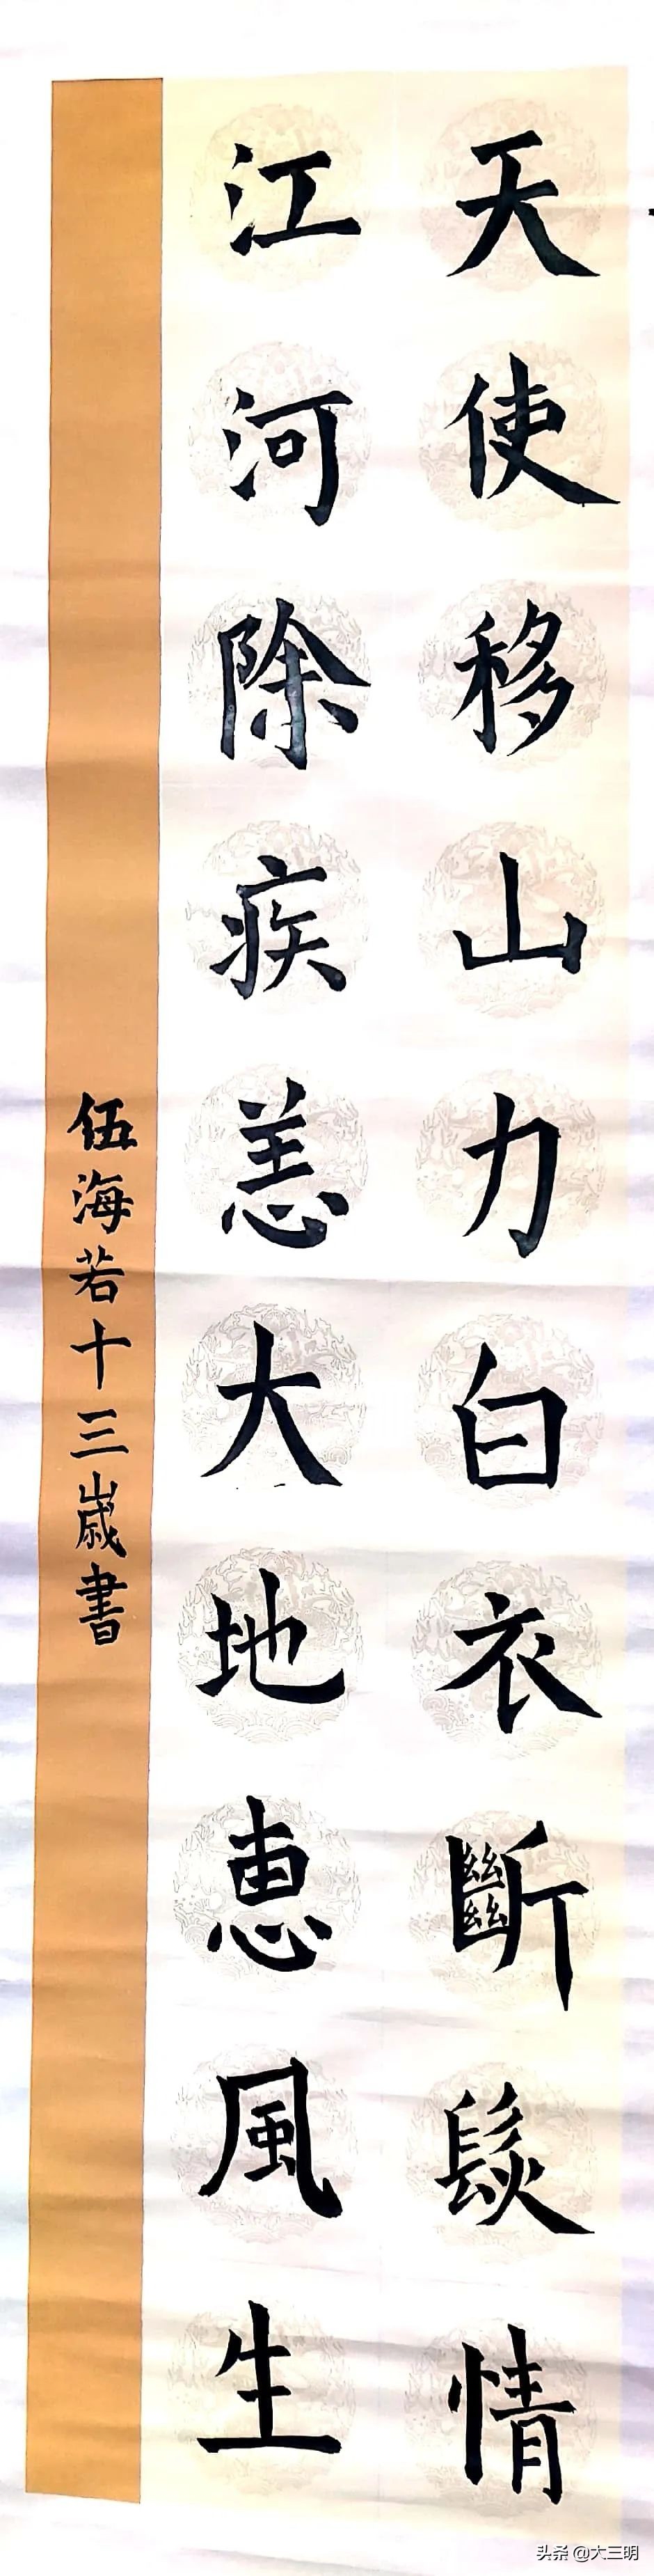 天使移山力白衣斷髮情
江河除疾恙大地惠風生
伍海若十三歲書
头条 @大三明